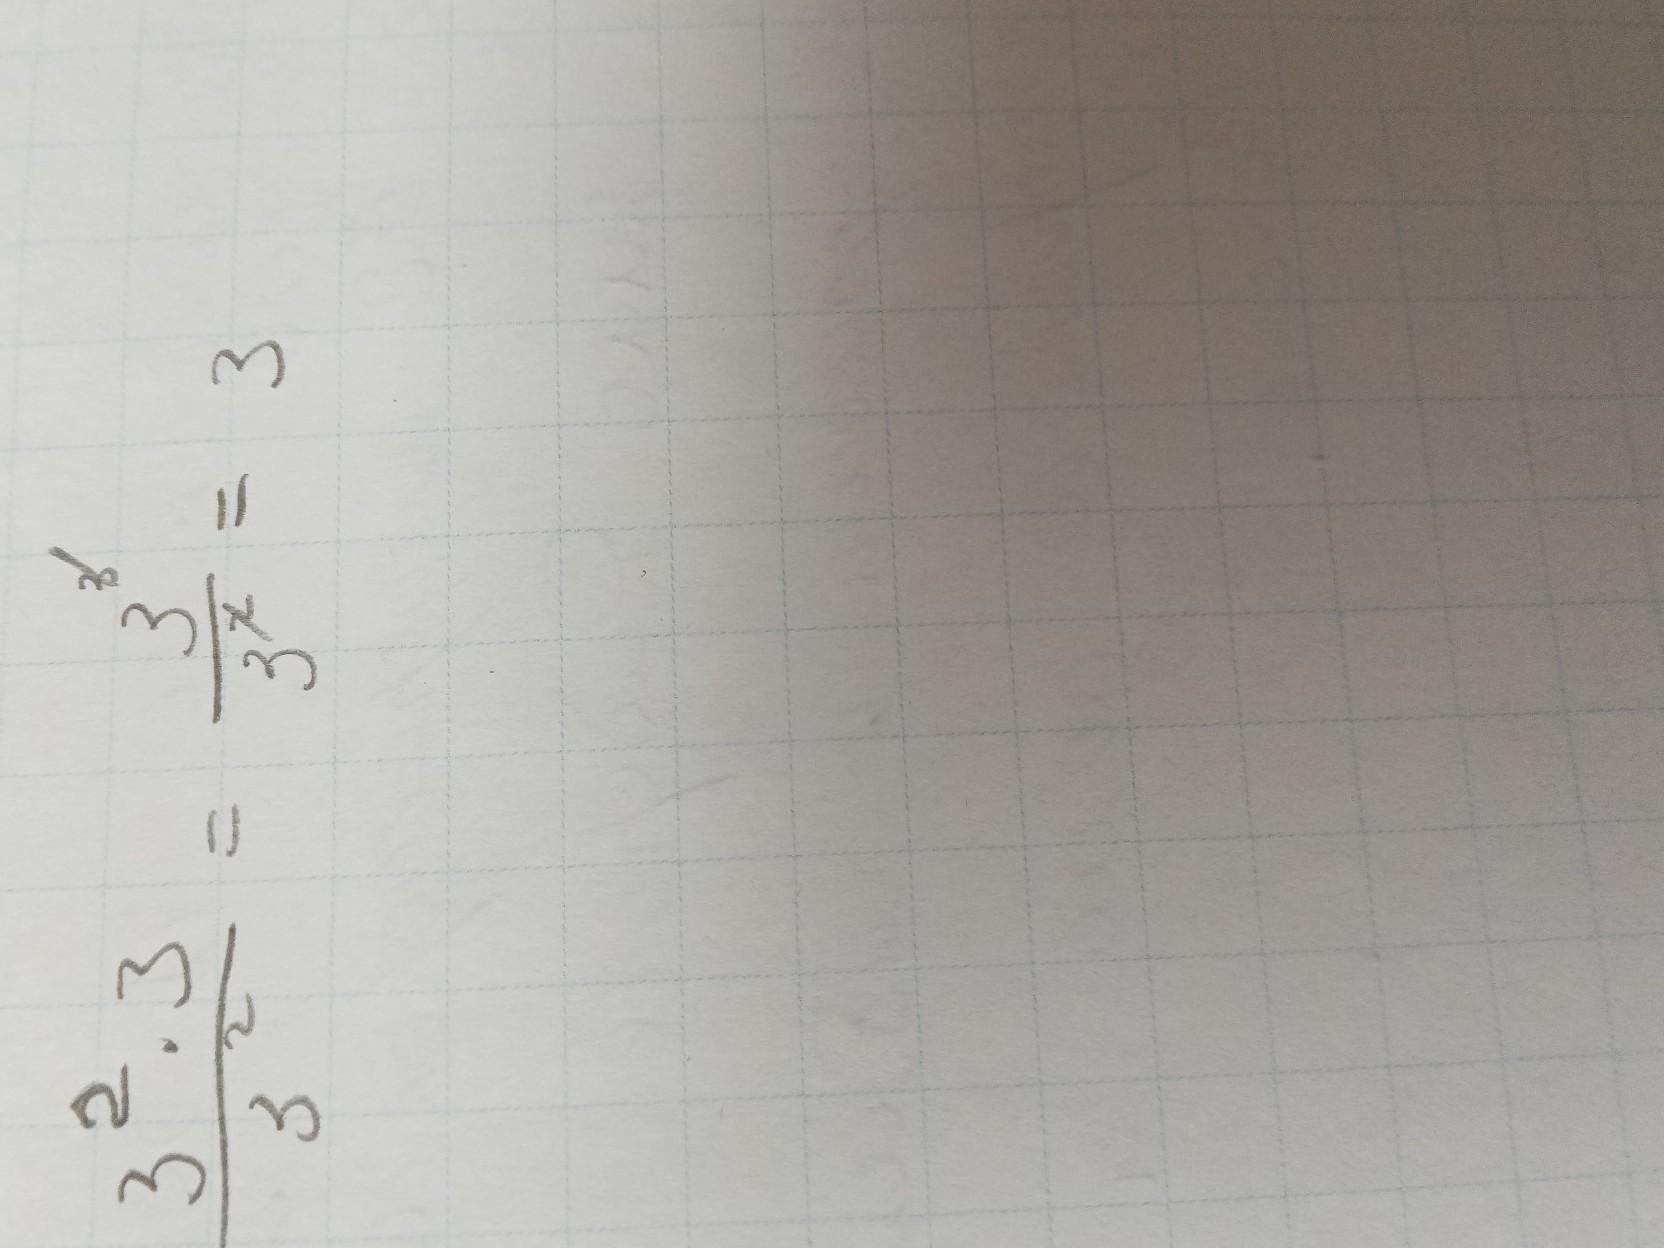 3² · 3 / 3² = 3³ / 3² = 3